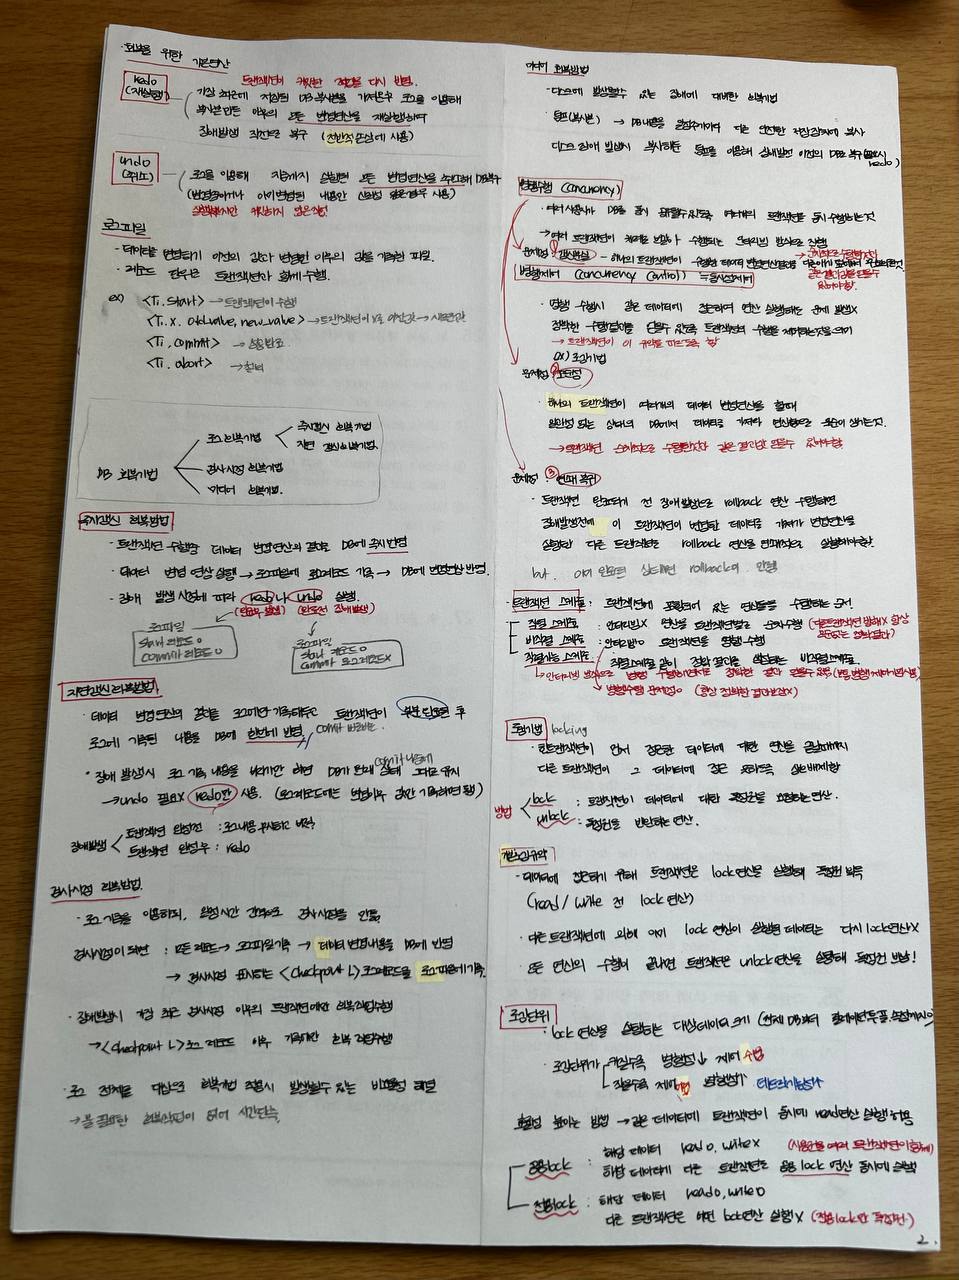 회복을 위한 기본연산
redo
(재실행)
트랜잭션이 커밋한 작업을 다시 반영.
가장 최근에 저장된 DB 복사본을 가져온후 로그를 이용해
복사본 만든 이후의 모든 변경연산을 재실행하여
장애발생 직전으로 복구 (전반적 손상에 사용)
undo
(취소)
로그를 이용해 지금까지 실행된 모든 변경연산을 취소해 DB복구
(변경중이거나 이미 변경된 내용만 신뢰성 잃은경우 사용)
실행했지만 커밋하지 않은작업
로그파일
· 데이터를 변경하기 이전의 값과 변경한 이후의 값을 기록한 파일.
· 레코드 단위로 트랜잭션과 함께 수행.
ex) <Ti, start> → 트랜잭션이 수행
<Ti, x, old_value, new_value> → 트랜잭션이 x를 이전값 → 새로운값
<Ti, commit> → 성공완료
<Ti, abort> → 철회
DB 회복기법
로그 회복기법
즉시갱신 회복기법
지연 갱신 회복기법.
검사시점 회복기법
미디어 회복기법.
즉시갱신 회복방법
· 트랜잭션 수행중 데이터 변경연산의 결과를 DB에 즉시 반영
· 데이터 변경 연산 실행 → 로그파일에 로그레코드 기록 → DB에 변경연산 반영.
· 장애 발생 시점에 따라 redo나 undo 실행.
(완료후 발생) (완료전 장애발생)
로그파일
start 레코드 o
commit 레코드 o
로그파일
start 레코드 o
commit 로그레코드x
지연갱신 회복방법
· 데이터 변경연산의 결과를 로그에만 기록해두고 트랜잭션이 부분 완료된 후
로그에 기록된 내용을 DB에 한번에 반영
· 장애 발생시 로그 기록 내용을 버리기만 하면 DB가 원래 상태 그대로 유지
→ undo 필요x redo만 사용. (로그레코드에는 변경이후 값만 기록하면 됨)
장애발생
트랜잭션 완료전 : 로그내용 무시하고 버림
트랜잭션 완료후 : redo
검사시점 회복방법.
· 로그 기록을 이용하되, 일정시간 간격으로 검사시점을 만듦.
검사시점이 되면 : 모든 레코드 → 로그파일 기록 → 데이터 변경내용을 DB에 반영
→ 검사시점 표시하는 <checkpoint L> 로그레코드를 로그파일에 기록.
· 장애발생시 가장 최근 검사시점 이후의 트랜잭션에만 회복작업수행
→ <checkpoint L> 로그 레코드 이후 기록에만 회복 작업수행
· 로그 전체를 대상으로 회복기법 적용시 발생할수 있는 비효율성 해결
→ 불필요한 회복작업이 없어 시간단축
미디어 회복방법
· 디스크에 발생할수 있는 장애에 대비한 회복기법
· 덤프(복사본) → DB내용을 일정주기마다 다른 안전한 저장장치에 복사
디스크 장애 발생시 복사해둔 덤프를 이용해 장애발생 이전의 DB로 복구 (필요시 redo)
병행수행 (concurrency)
· 여러사용자가 DB를 동시 공유할수 있도록 여러개의 트랜잭션을 동시 수행하는것
→ 여러 트랜잭션이 차례로 번갈아 수행되는 인터리빙 방식으로 진행
문제점 ① 갱신분실
병행제어 (concurrency control) = 동시성제어
· 병행 수행시 같은 데이터에 접근하여 연산 실행해도 문제 발생X
정확한 수행결과를 얻을수 있도록 트랜잭션의 수행을 제어하는것을 의미
→ 트랜잭션이 이 규약을 따르도록 함
ex) 로킹기법
문제점 ② 모순성
· 하나의 트랜잭션이 여러개의 데이터 변경연산을 할때
일관성 없는 상태의 DB에서 데이터를 가져와 연산함으로 모순이 생기는것.
→ 트랜잭션 순차적으로 수행한것과 같은 결과값 얻을수 있어야함
문제점 ③ 연쇄 복귀
· 트랜잭션 완료되기 전 장애 발생으로 rollback 연산 수행하면
장애발생전에 이 트랜잭션이 변경한 데이터를 가져가 변경연산을
실행한 다른 트랜잭션도 rollback 연산을 연쇄적으로 실행해야함.
but. 이미 완료된 상태면 rollback이 안됨
트랜잭션 스케줄 : 트랜잭션에 포함되어 있는 연산들을 수행하는 순서
직렬 스케줄 : 인터리빙X 연산을 트랜잭션별로 순차수행
비직렬 스케줄 : 인터리빙o 트랜잭션을 병행 수행
직렬가능 스케줄 : 직렬스케줄 같이 정확한 결과를 생성하는 비직렬스케줄.
로킹기법 locking
· 한트랜잭션이 먼저 접근한 데이터에 대한 연산을 끝날때까지
다른 트랜잭션이 그 데이터에 접근 못하도록 상호배제함
방법
lock : 트랜잭션이 데이터에 대한 독점권을 요청하는연산.
unlock : 독점권을 반환하는연산.
기본로킹규약
· 데이터에 접근하기 위해 트랜잭션은 lock연산을 실행해 독점권 획득
(read / write 전 lock연산)
· 다른 트랜잭션에 의해 이미 lock 연산이 실행된 데이터는 다시 lock연산x
· 모든 연산의 수행이 끝나면 트랜잭션은 unlock연산을 실행해 독점권 반납!
로킹단위
· lock 연산을 실행하는 대상데이터 크기 (전체 DB부터 릴레이션 투플, 속성까지 o)
· 로킹단위가 커질수록 병행성↓ 제어 수월
작을수록 제어 병행성↑
효율성 높이는 방법 → 같은 데이터에 트랜잭션이 동시에 read연산 실행 허용
공용lock : 해당 데이터 read o, write x (사용권을 여러 트랜잭션이 함께)
해당 데이터에 다른 트랜잭션도 공용 lock 연산 동시에 실행
전용lock : 해당 데이터 read o, write o
다른 트랜잭션은 어떤 lock연산 실행X (전용lock만 독점권.)
2.